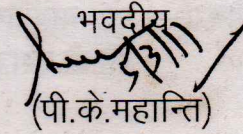 भवदीय
(पी.के.महान्ति)